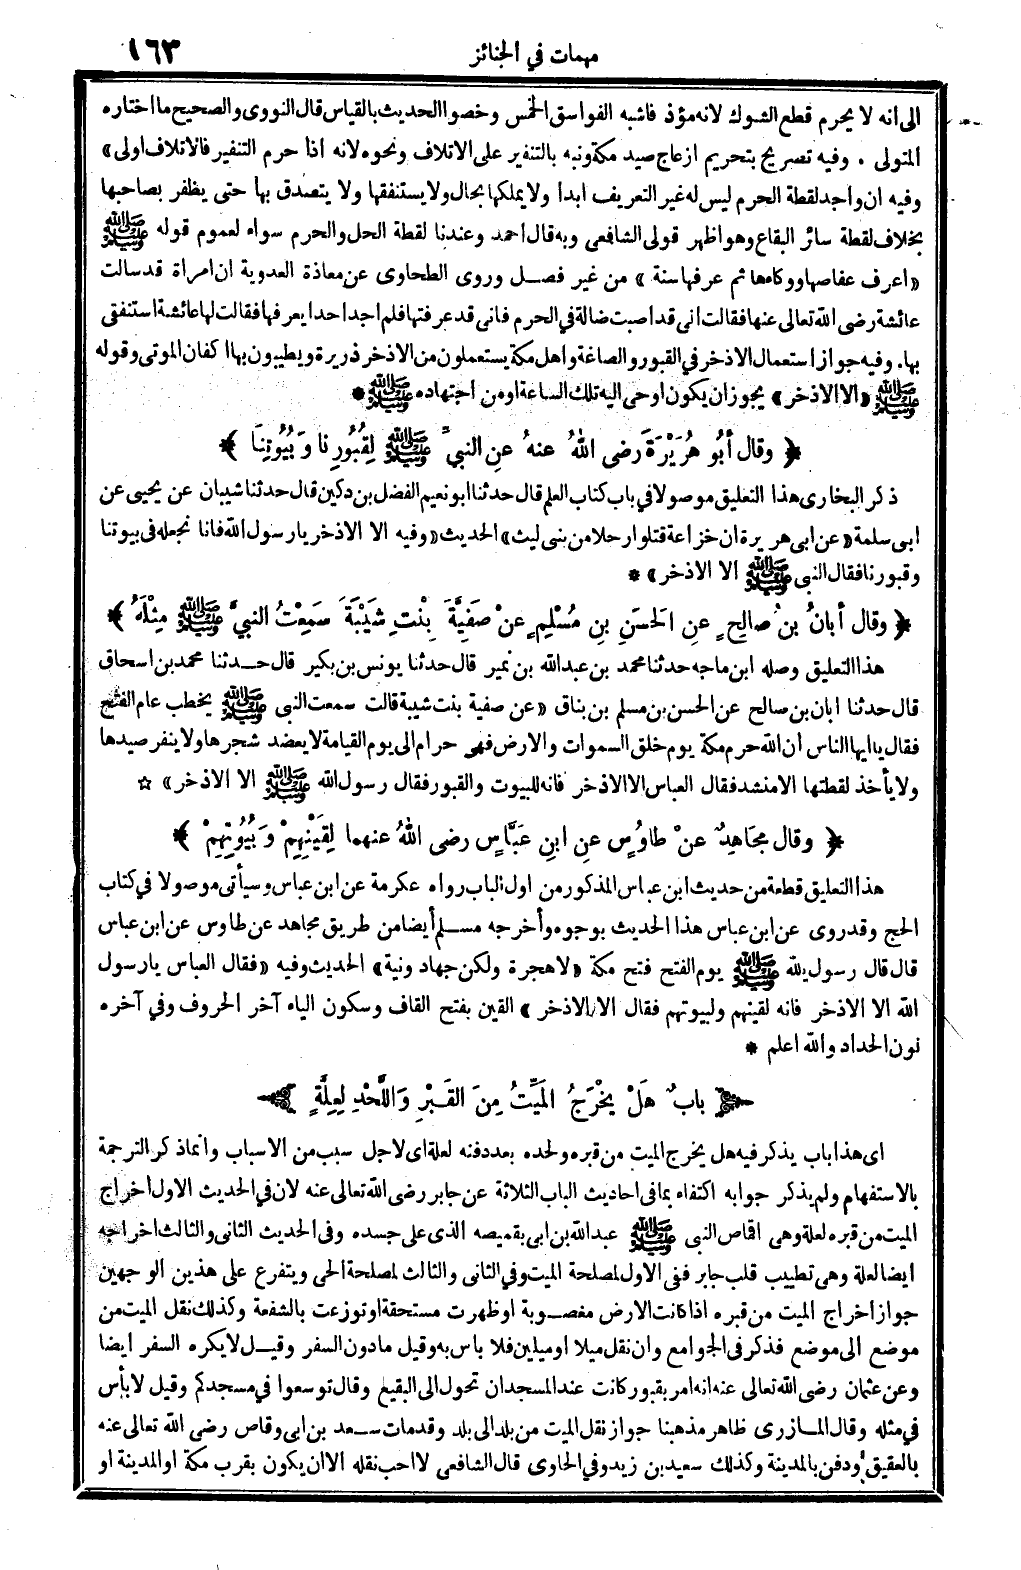 مهمات في الجنائز
١٦٣
الى انه لا يحرم قطع الشوك لانه مؤذ فاشبه الفواسق الخمس وخصوا الحديث بالقياس قال النووى والصحيح ما اختاره
المتولى . وفيه تصريح بتحريم ازعاج صيد مكة ونبه بالتنفير على الاتلاف ونحوه لانه اذا حرم التنفير فالاتلاف اولى»
وفيه ان واجد لقطة الحرم ليس له غير التعريف ابدا ولا يملكها بحال ولا يستنفقها ولا يتصدق بها حتى يظفر بصاحبها
بخلاف لقطة سائر البقاع وهو اظهر قولى الشافعى وبه قال احمد وعندنا لقطة الحل والحرم سواء لعموم قوله ﷺ
«اعرف عفاصها ووكاءها ثم عرفها سنة» من غير فصل وروى الطحاوى عن معاذة العدوية ان امرأة قد سالت
عائشة رضى الله تعالى عنها فقالت انى قد اصبت ضالة في الحرم فانى قد عرفتها فلم اجد احدا يعرفها فقالت لها عائشة استنفقى
بها. وفيه جواز استعمال الاذخر في القبور والصاغة واهل مكة يستعملون من الاذخر ذريرة ويطيبون بها اكفان الموتى وقوله
ﷺ «الا الاذخر» يجوز ان يكون اوحى اليه تلك الساعة او من اجتهاده ﷺ *
﴿ وقال أَبُو هُرَيْرَةَ رَضى اللهُ عنهُ عنِ النبيِّ ﷺ لِقُبُورِنا وَبُيُوتِنَا ﴾
ذكر البخارى هذا التعليق موصولا في باب كتاب العلم قال حدثنا ابو نعيم الفضل بن دكين قال حدثنا شيبان عن يحيى عن
ابى سلمة «عن ابى هريرة ان خزاعة قتلوا رجلا من بنى ليث» الحديث «وفيه الا الاذخر يا رسول الله فانا نجعله فى بيوتنا
وقبورنا فقال النبى ﷺ الا الاذخر» *
﴿ وقال أبانُ بنُ صالِحٍ عنِ الحَسَنِ بنِ مُسْلِمٍ عنْ صَفِيَّةَ بِنْتِ شَيْبَةَ سَمِعْتُ النبيَّ ﷺ مِثْلَهُ ﴾
هذا التعليق وصله ابن ماجه حدثنا محمد بن عبد الله بن نمير قال حدثنا يونس بن بكير قال حدثنا محمد بن اسحاق
قال حدثنا ابان بن صالح عن الحسن بن مسلم بن يناق «عن صفية بنت شيبة قالت سمعت النبى ﷺ يخطب عام الفتح
فقال يا ايها الناس ان الله حرم مكة يوم خلق السموات والارض فهى حرام الى يوم القيامة لا يعضد شجرها ولا ينفر صيدها
ولا يأخذ لقطتها الا منشد فقال العباس الا الاذخر فانه للبيوت والقبور فقال رسول الله ﷺ الا الاذخر» ☆
﴿ وقال مجَاهِدٌ عنْ طاوُسٍ عنِ ابنِ عَبَّاسٍ رضى اللهُ عنهما لِقَيْنِهِمْ وَبُيُوتِهِمْ ﴾
هذا التعليق قطعة من حديث ابن عباس المذكور من اول الباب رواه عكرمة عن ابن عباس وسيأتى موصولا في كتاب
الحج وقد روى عن ابن عباس هذا الحديث بوجوه وأخرجه مسلم أيضا من طريق مجاهد عن طاوس عن ابن عباس
قال قال رسول الله ﷺ يوم الفتح فتح مكة «لا هجرة ولكن جهاد ونية» الحديث وفيه «فقال العباس يا رسول
الله الا الاذخر فانه لقينهم ولبيوتهم فقال الا الاذخر» القين بفتح القاف وسكون الياء آخر الحروف وفي آخره
نون الحداد والله اعلم *
باب هَلْ يخْرَجُ المَيِّتُ مِنَ القَبْرِ وَاللَّحْدِ لِعِلَّةٍ
اى هذا باب يذكر فيه هل يخرج الميت من قبره ولحده بعد دفنه لعلة اى لاجل سبب من الاسباب وانما ذكر الترجمة
بالاستفهام ولم يذكر جوابه اكتفاء بما فى احاديث الباب الثلاثة عن جابر رضى الله تعالى عنه لان في الحديث الاول اخراج
الميت من قبره لعلة وهى اقماص النبى ﷺ عبد الله بن ابى بقميصه الذى على جسده وفى الحديث الثانى والثالث اخراجه
ايضا لعلة وهى تطييب قلب جابر ففى الاول لمصلحة الميت وفي الثانى والثالث لمصلحة الحى ويتفرع على هذين الوجهين
جواز اخراج الميت من قبره اذا كانت الارض مغصوبة او ظهرت مستحقة او توزعت بالشفعة وكذلك نقل الميت من
موضع الى موضع فذكر فى الجوامع وان نقل ميلا او ميلين فلا باس به وقيل ما دون السفر وقيل لا يكره السفر ايضا
وعن عثمان رضى الله تعالى عنه انه امر بقبور كانت عند المسجد ان تحول الى البقيع وقال توسعوا في مسجدكم وقيل لا بأس
في مثله وقال المازرى ظاهر مذهبنا جواز نقل الميت من بلد الى بلد وقد مات سعد بن ابى وقاص رضى الله تعالى عنه
بالعقيق ودفن بالمدينة وكذلك سعيد بن زيد وفي الحاوى قال الشافعى لا احب نقله الا ان يكون بقرب مكة او المدينة او